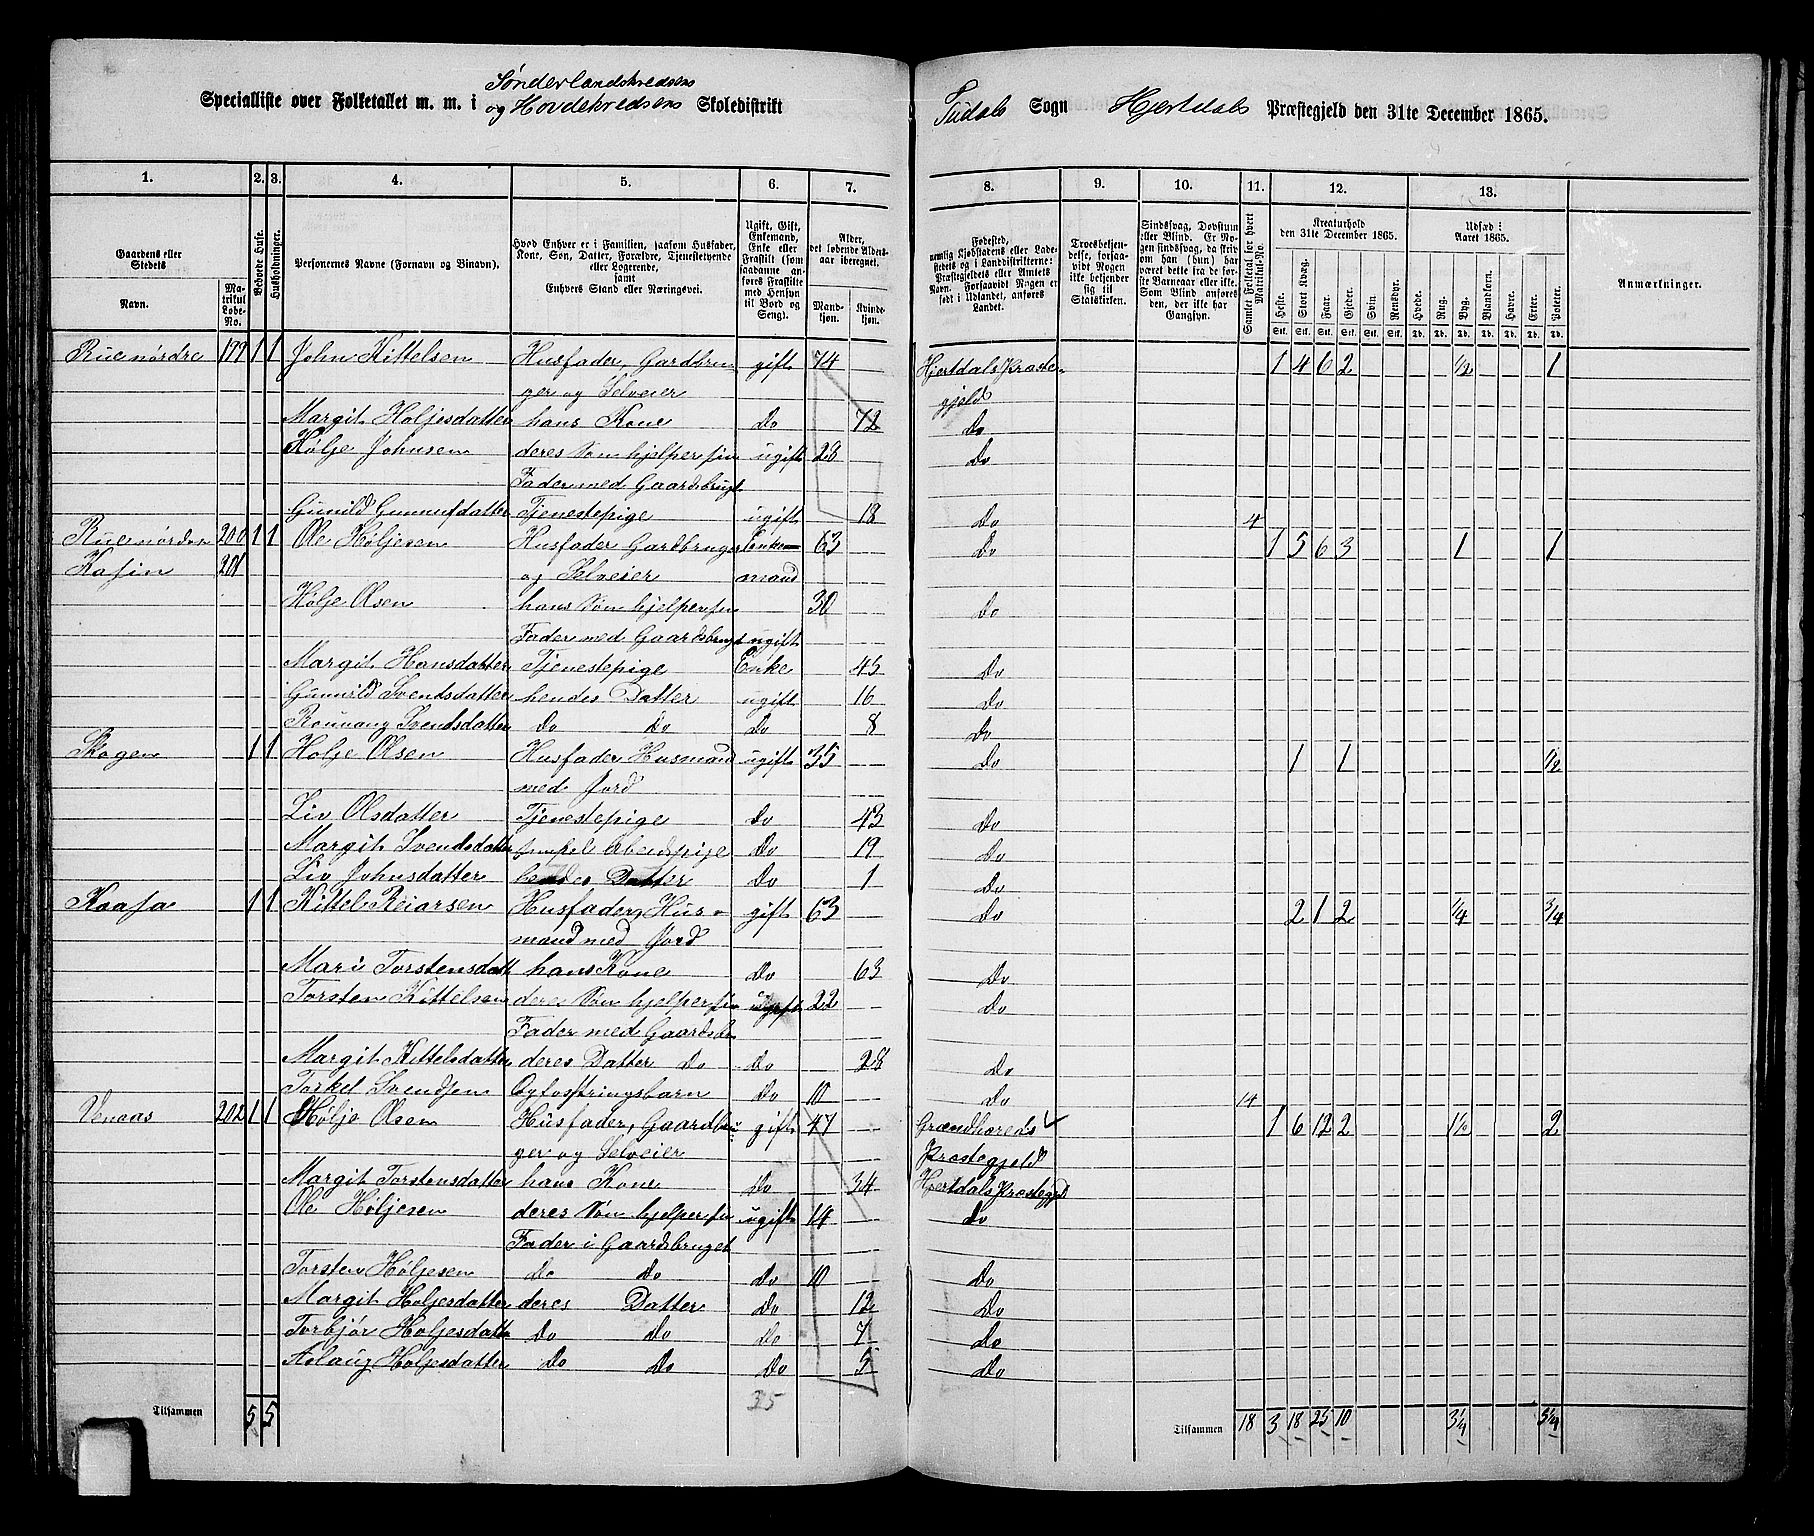 Specialliste over Folketallet m. m. i Sønderlandskredsens og Hovdekredsens Skoledistrikt
Tudals Sogn Hjertdals Præstegjeld den 31te December 1865.
1. 2. 3. 4. 5. 6. 7. 8. 9. 10. 11. 12. 13.
Gaardens eller Stedets
Navn. Matrikul Løbe-No.
Beboede Huse.
Husholdninger.
Personernes Navne (Fornavn og Tilnavn).
Hvad Enhver er i Familien, saasom Husfader, Kone, Søn, Datter, Forældre, Tjenestetyende eller Logerende, samt Enhvers Stand eller Næringsvei.
Ugift, Gift, Enkemand, Enke eller Fraskilt (som saadanne anføres Fraskilte med Hensyn til Bord og Seng).
Alder, det løbende Alders-aar iberegnet.
Mandkjøn. Kvindekjøn.
Fødested,
Samlet Folketal for hvert Matrikul-No.
Kreaturhold den 31te December 1865.
Heste. Stort Kvæg. Faar. Gjeder. Svin. Rensdyr.
Udsæd i Aaret 1865.
Hvede. Rug. Byg. Blandkorn. Havre. Erter. Poteter.
Anmærkninger.
Ruenørdre 199 1 1 John Kittelsen Husfader, Gardbru- gift 74 Hjertdals Præste- 1 4 6 2 1/2 1
ger og Selveier gjeld
Margit Holjesdatter hans Kone Do 72 Do
Hølje Johnsen deres Søn hjelper sin ugift 28 Do
Fader med Gaardsbruget
Gunild Gunnufdatter Tjenestepige ugift 18 Do 4
Ruenørdre 200 1 1 Ole Høljesen Husfader Gardbruger Enke- 63 Do 1 5 6 3 1 1
Kasin 201 og Selveier mand
Hølje Olsen hans Søn hjelper sin 30 Do
Fader med Gaardsbruget ugift
Margit Hansdatter Tjenestepige Enke 45 Do
Gunnild Svendsdatter hendes Datter ugift 16 Do
Rouvang Svendsdatter Do Do Do 8 Do
Skogen 1 1 Holje Olsen Husfader Husmand ugift 35 Do 1 1 1/2
med Jord
Liv Olsdatter Tjenestepige Do 43 Do
Margit Svendsdatter Do 19 Do
Liv Johnsdatter hendes Datter Do 1 Do
Kaasa 1 1 Kittel Reiarsen Husfader, Hus- gift 63 Do 2 1 2 1/4 3/4
mand med Jord
Mari Torstensdatt hans Kone Do 63 Do
Torsten Kittelsen deres Søn hjelper sin ugift 22 Do
Fader med Gaardsbr
Margit Kittelsdatter deres Datter Do Do 28 Do
Torkel Svendsen Opfostringsbarn Do 10 Do 14
Venaas 202 1 1 Hølje Olsen Husfader, Gaardbru- gift 47 Grandhereds 1 6 12 2 1 1/2 2
ger og Selveier Præstegjeld
Margit Torstensdatter hans Kone Do 34 Hjertdals Præstegjd
Ole Høljesen deres Søn hjelper sin ugift 14 Do
Fader i Gaardsbruget
Torsten Høljesen Do Do Do 10 Do
Margit Holjesdatter deres Datter Do 12 Do
Torbjør Holjesdatte Do Do Do 7 Do
Aslaug Holjesdatter Do Do Do 5 Do
35
Tilsammen 5 5 Tilsammen 18 3 18 25 10 3 1/4 5 1/4